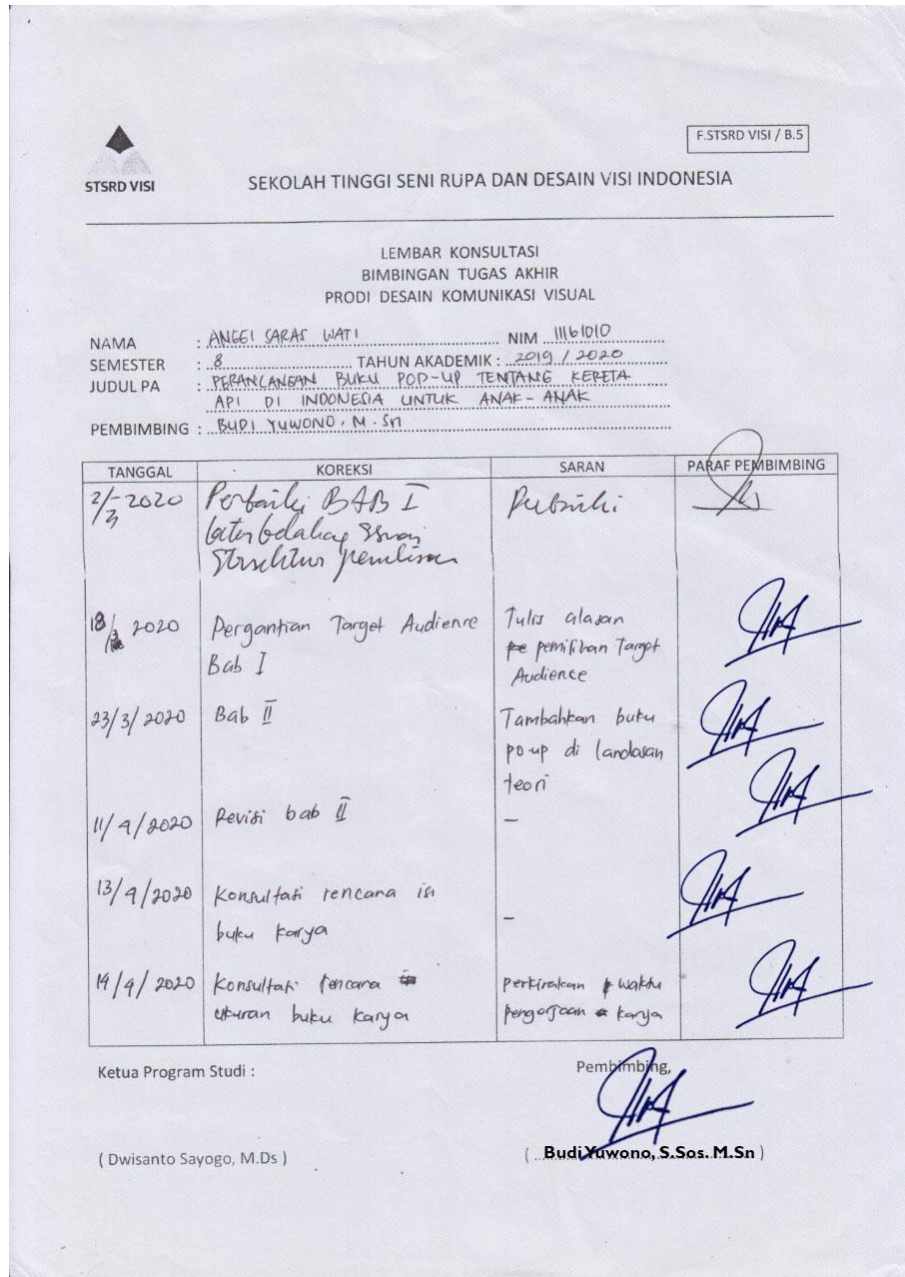 F.STSRD VISI / B.5
STSRD VISI
SEKOLAH TINGGI SENI RUPA DAN DESAIN VISI INDONESIA
LEMBAR KONSULTASI
BIMBINGAN TUGAS AKHIR
PRODI DESAIN KOMUNIKASI VISUAL
NAMA : ANGGI SARAS WATI NIM 11161010
SEMESTER : 8 TAHUN AKADEMIK : 2019 / 2020
JUDUL PA : PERANCANGAN BUKU POP-UP TENTANG KERETA
API DI INDONESIA UNTUK ANAK-ANAK
PEMBIMBING : BUDI YUWONO, M.Sn
TANGGAL KOREKSI SARAN PARAF PEMBIMBING
2/3 2020 Perbaiki BAB I Perbaiki
latar belakang sesuai
Struktur penulisan
18/3 2020 Pergantian Target Audience Tulis alasan
Bab I pemilihan Target
Audience
23/3/2020 Bab II Tambahkan buku
po-up di landasan
teori
11/4/2020 Revisi bab II -
13/4/2020 Konsultasi rencana isi -
buku karya
14/4/2020 Konsultasi rencana perkirakan waktu
ukuran buku karya pengerjaan karya
Ketua Program Studi : Pembimbing,
( Dwisanto Sayogo, M.Ds ) ( Budi Yuwono, S.Sos. M.Sn )